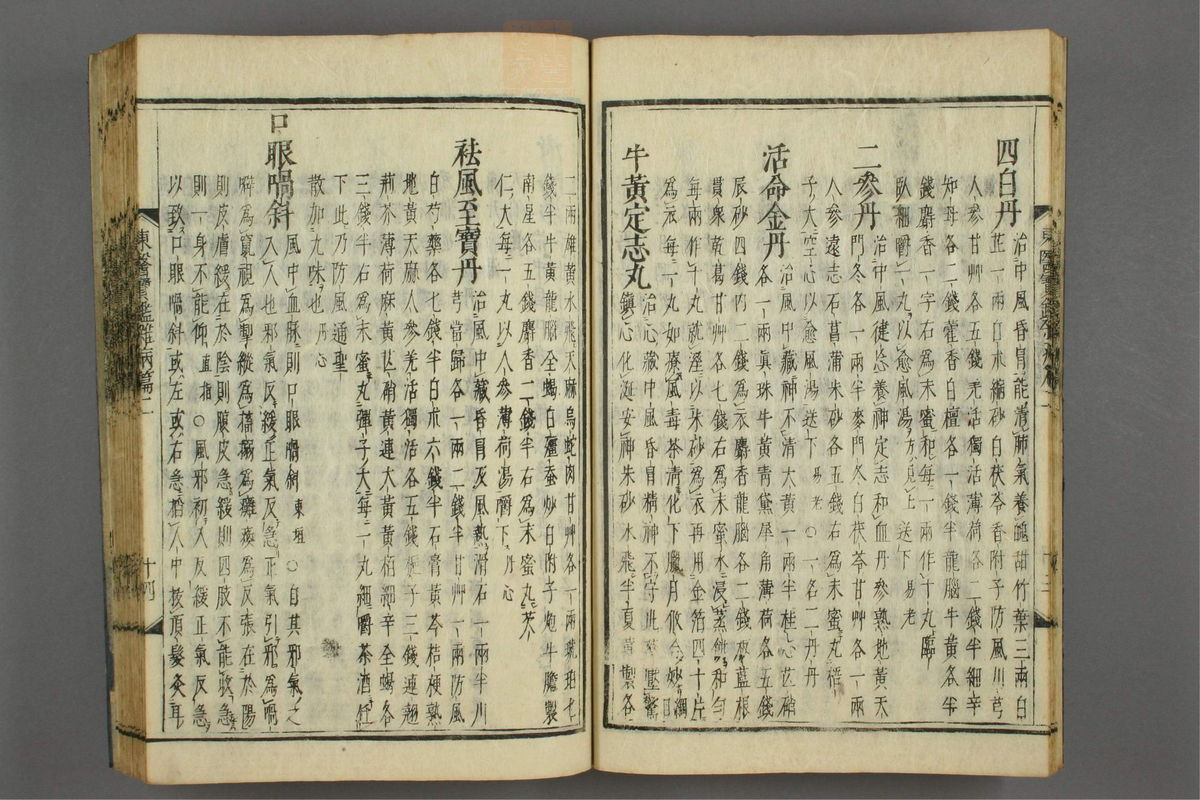 四白丹 治中風昏冒能清肺氣養魄甜竹葉三兩白
芷一兩白朮縮砂白茯苓香附子防風川芎
人參甘艸各五錢羌活獨活薄荷各二錢半細辛
知母各二錢藿香白檀各一錢半龍腦牛黃各半
錢麝香一字右爲末蜜和每一兩作十丸臨
臥細嚼一丸以愈風湯方見上送下易老
二參丹 治中風健忘養神定志和血丹參熟地黃天
門冬各一兩半麥門冬白茯苓甘艸各一兩
人參遠志石菖蒲朱砂各五錢右爲末蜜丸梧
子大空心以愈風湯送下易老○一名二丹丹
活命金丹 治風中藏神不清大黃一兩半桂心芒硝
各一兩眞珠牛黃青黛犀角薄荷各五錢
辰砂四錢內二錢爲衣麝香龍腦各二錢板藍根
貫衆乾葛甘艸各七錢右爲末蜜水浸蒸餠和勻
每兩作十丸就濕以朱砂爲衣再用金箔四十片
爲衣每一丸如療風毒茶清化下臘月修合妙
牛黃定志丸 治心藏中風昏冒精神不守
鎭心化涎安神朱砂水飛半夏薑製各
二兩雄黃水飛天麻烏蛇肉甘艸各一兩琥珀七
錢半牛黃龍腦全蝎白殭蚕炒白附子炮牛膽製
南星各五錢麝香二錢半右爲末蜜丸芡
仁大每一丸以人參薄荷湯嚼下丹心
祛風至寶丹 治風中藏昏冒及風熱滑石一兩半川
芎當歸各一兩二錢半甘艸一兩防風
白芍藥各七錢半白朮六錢半石膏黃芩桔梗熟
地黃天麻人參羌活獨活各五錢梔子三錢連翹
荊芥薄荷麻黃芒硝黃連大黃黃栢細辛全蝎各
三錢半右爲末蜜丸彈子大每二丸細嚼茶酒任
下此乃防風通聖
散加九味也丹心
口眼喎斜 風中血脉則口眼喎斜東垣○自其邪氣之
入人也邪氣反緩正氣反急正氣引邪爲喎
僻爲窺視爲掣縱爲瘙瘍爲癱瘓爲反張在於陽
則皮膚緩在於陰則腹皮急緩則四肢不能收急
則一身不能仰直指○風邪初入反緩正氣反急
以致口眼喎斜或左或右急掐人中拔頂髮灸耳
東醫寶鑑雜病篇二 十四